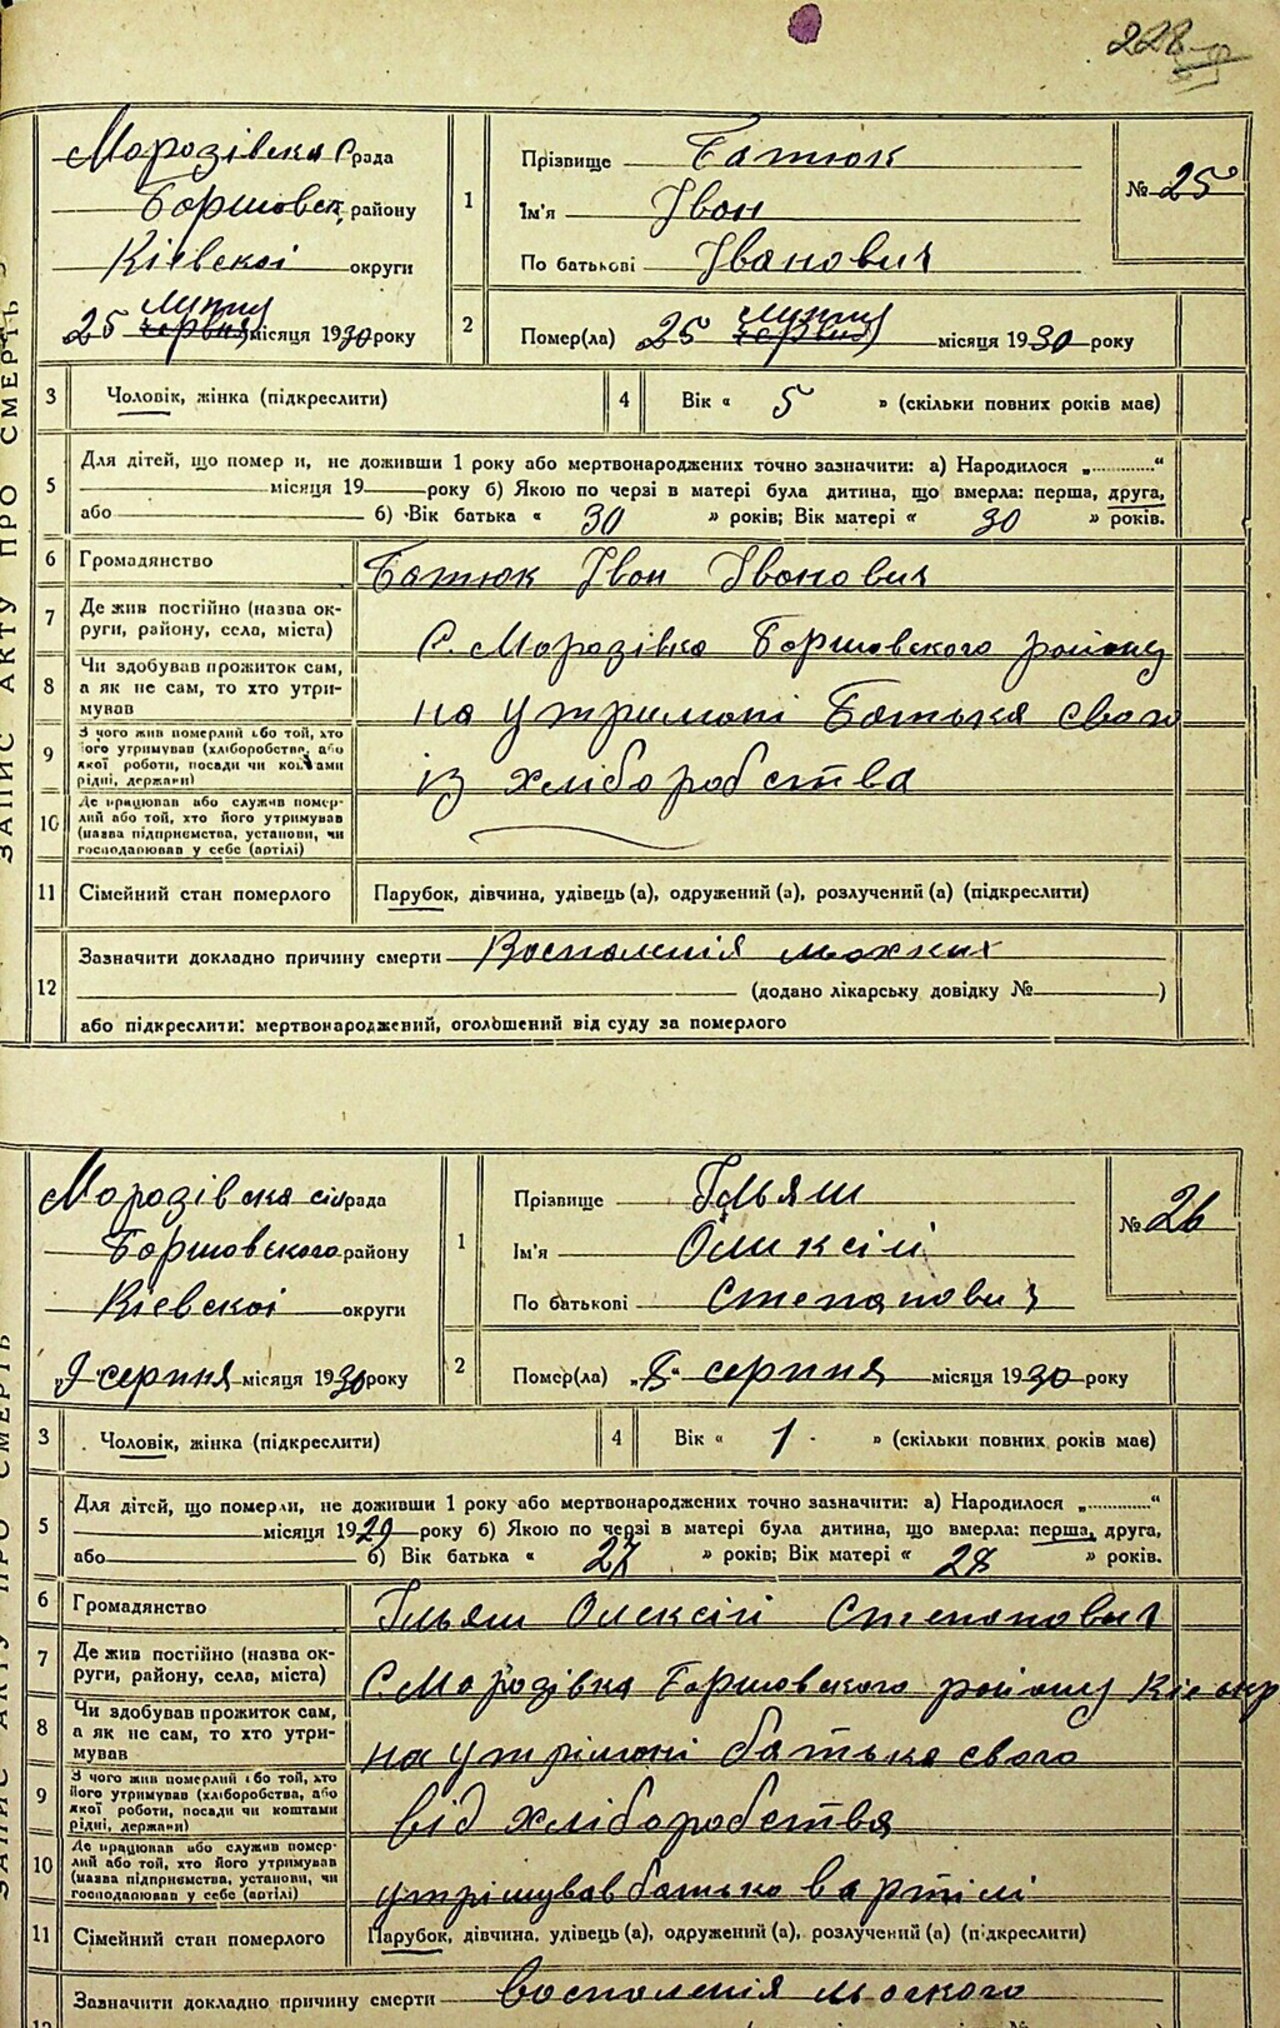 228
ЗАПИС АКТУ ПРО СМЕРТЬ
Морозівска Срада
Боршовск. району
Кіевскоі округи
25 липня червня місяця 1930 року
1
Прізвище Батюк
Ім'я Іван
По батькові Іванович
№ 25
2
Помер(ла) 25 липня червня місяця 1930 року
3 Чоловік, жінка (підкреслити)
4 Вік « 5 » (скільки повних років має)
5 Для дітей, що помер и, не доживши 1 року або мертвонароджених точно зазначити: а) Народилося „............“
місяця 19 року б) Якою по черзі в матері була дитина, що вмерла: перша, друга,
або б) Вік батька « 30 » років; Вік матері « 30 » років.
6 Громадянство Батюк Іван Іванович
7 Де жив постійно (назва ок-
руги, району, села, міста) С. Морозівка Боршовского району
8 Чи здобував прожиток сам,
а як не сам, то хто утри-
мував на утримані Батька свого
9 З чого жив померлий або той, хто
його утримував (хліборобства, або
якої роботи, посади чи коштами
рідні, держави) із хліборобства
10 Де працював або служив помер-
лий або той, хто його утримував
(назва підприємства, установи, чи
господарював у себе (артілі)
11 Сімейний стан померлого Парубок, дівчина, удівець (а), одружений (а), розлучений (а) (підкреслити)
12 Зазначити докладно причину смерти Воспаленія
(додано лікарську довідку № )
або підкреслити: мертвонароджений, оголошений від суду за померлого
ЗАПИС АКТУ ПРО СМЕРТЬ
Морозівска сільрада
Боршовского району
Кіевскоі округи
„9“ серпня місяця 1930 року
1
Прізвище Ільяш
Ім'я Олексій
По батькові Степанович
№ 26
2
Помер(ла) „8“ серпня місяця 1930 року
3 Чоловік, жінка (підкреслити)
4 Вік « 1 » (скільки повних років має)
5 Для дітей, що померли, не доживши 1 року або мертвонароджених точно зазначити: а) Народилося „............“
місяця 1929 року б) Якою по черзі в матері була дитина, що вмерла: перша, друга,
або б) Вік батька « 27 » років; Вік матері « 28 » років.
6 Громадянство Ільяш Олексій Степанович
7 Де жив постійно (назва ок-
руги, району, села, міста) С. Морозівка Боршовского району
8 Чи здобував прожиток сам,
а як не сам, то хто утри-
мував на утрімані батька свого
9 З чого жив померлий або той, хто
його утримував (хліборобства, або
якої роботи, посади чи коштами
рідні, держави) від хліборобства
10 Де працював або служив помер-
лий або той, хто його утримував
(назва підприємства, установи, чи
господарював у себе (артілі) утрімував батько в артілі
11 Сімейний стан померлого Парубок, дівчина, удівець (а), одружений (а), розлучений (а) (підкреслити)
Зазначити докладно причину смерти воспаленія